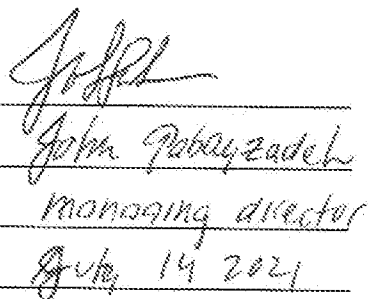 John Gabayzadeh
managing director
July 14 2021